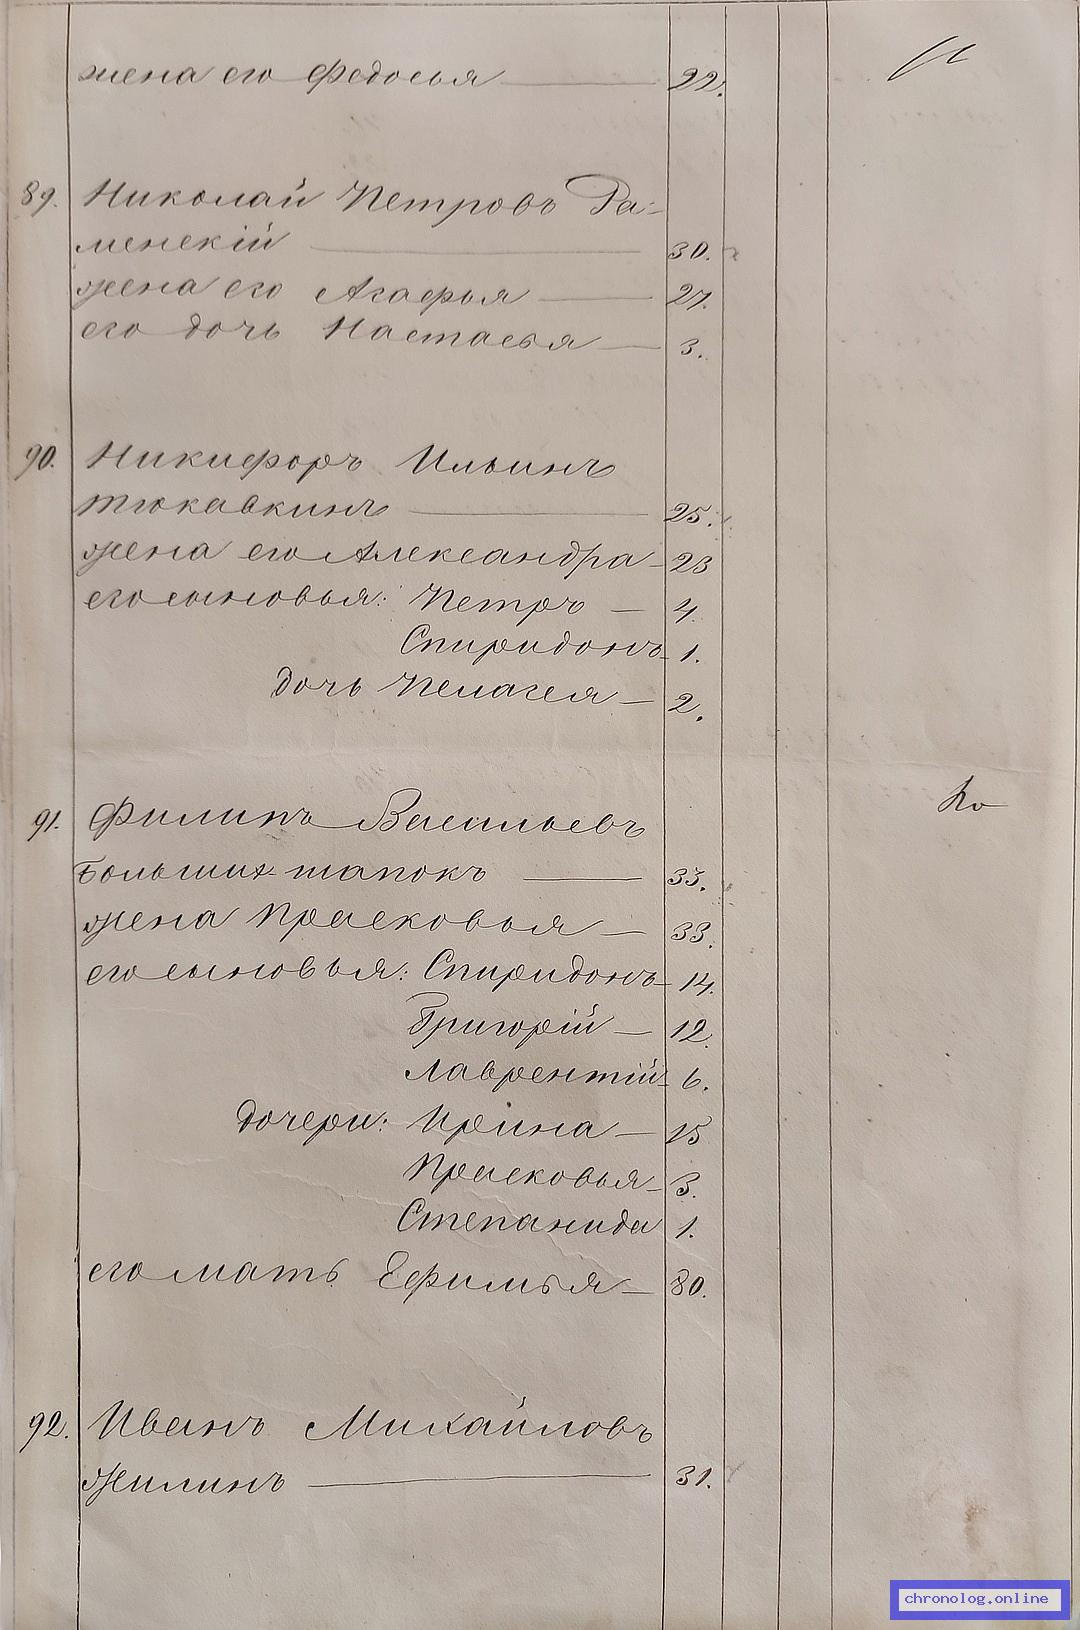 жена его Федосья — 22.
89. Николай Петровъ Ра-
менскій — 30.
жена его Агафья — 27.
его дочь Настасья — 3.
90. Никифоръ Ильинъ
Тюкавкинъ — 25.
жена его Александра — 23
его сыновья: Петръ — 4.
Спиридонъ 1.
дочь Пелагея — 2.
91. Филипъ Васильевъ
Большихъ-шапокъ — 33.
жена Прасковья — 33.
его сыновья: Спиридонъ 14.
Григорій — 12.
Лаврентій 6.
дочери: Ирина — 15
Прасковья 3.
Степанида 1.
его мать Ефимья — 80.
92. Иванъ Михайловъ
Жилинъ — 31.
chronolog.online